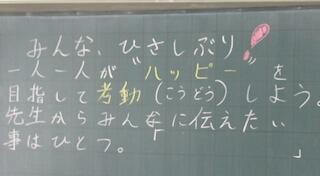 みんな、ひさしぶり!
一人一人が"ハッピー"を
目指して考動(こうどう)しよう。
先生からみんなに伝えたい
事はひとつ。「　　　　」